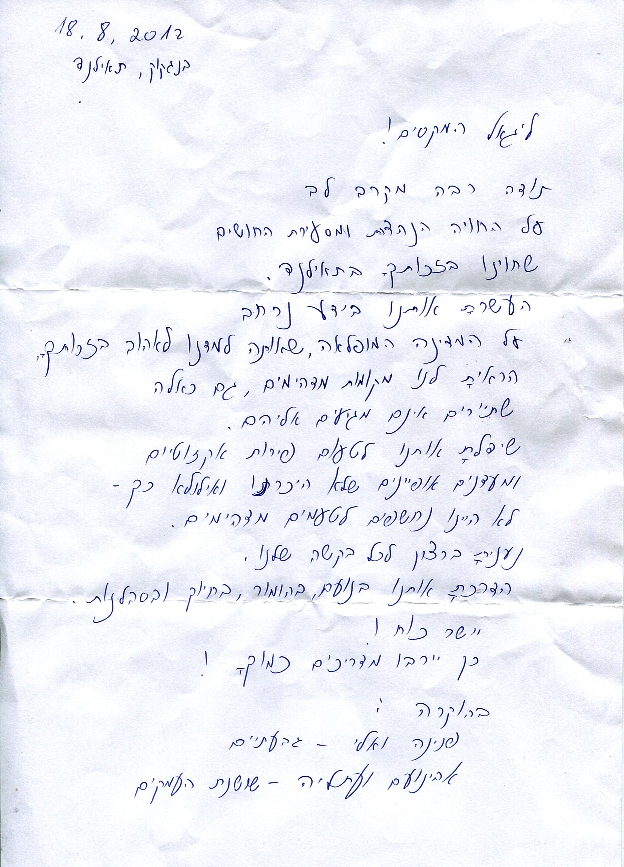 18.8.2012
בנגקוק, תאילנד
ליגאל המקסים!
תודה רבה מקרב לב
על החוויה הנהדרת ומסעירת החושים
שחווינו בזכותך בתאילנד.
העשרת אותנו בידע נרחב
על המדינה המופלאה, שאותה למדנו לאהוב בזכותך,
הראית לנו מקומות מדהימים, גם כאלה
שתיירים אינם מגיעים אליהם.
שיכלת אותנו לטעום פירות אקזוטיים
ומעדנים אופייניים שלא היכרנו ואילולא כך -
לא היינו נחשפים לטעמים מדהימים.
נענית ברצון לכל בקשה שלנו.
הדרכת אותנו בנועם, בהומור, בחיוך ובסבלנות.
יישר כוח!
כן יירבו מדריכים כמוך!
בהוקרה:
פנינה ואלי - גבעתיים
אבינועם ועתליה - שושנת העמקים